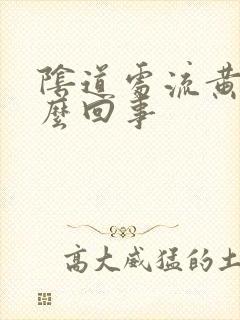 陰道需流黃
麼回事
高大威猛的土